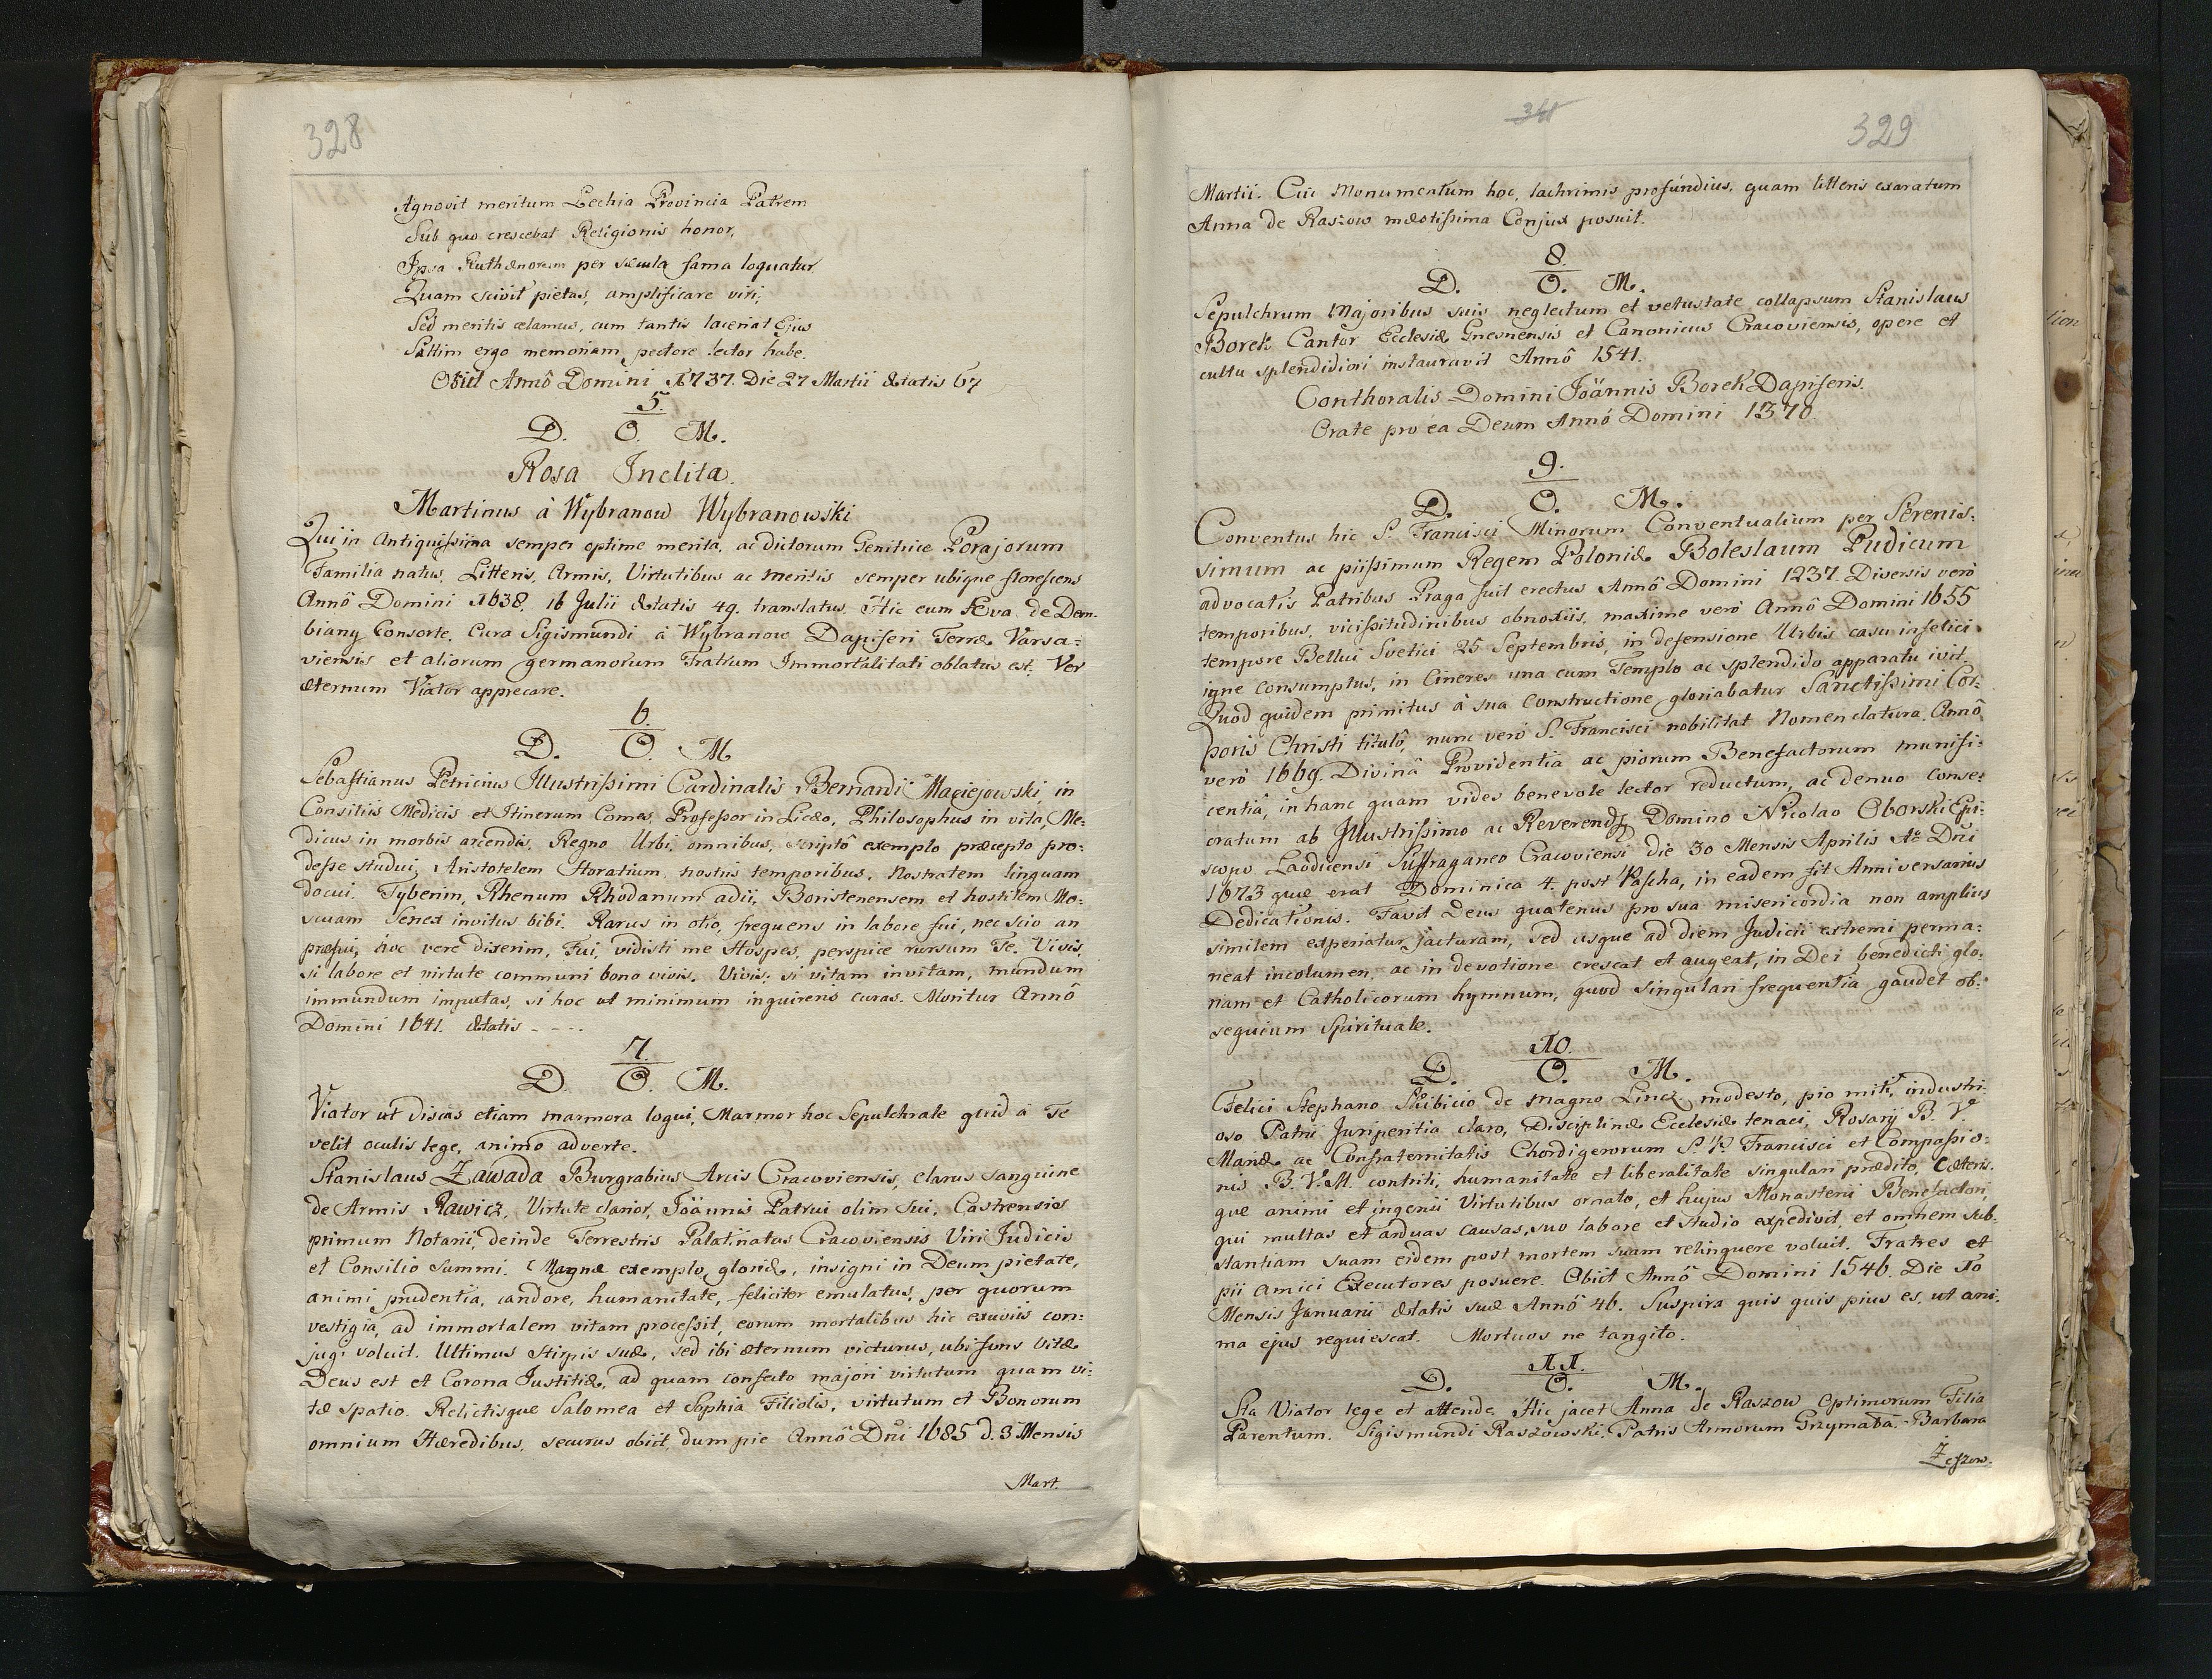 328
Agnovit meritum Lechia Provincia Patrem
Sub quo crescebat Religionis honor,
Ipsa Ruthenorum per sæcula fama loquatur
Quam scivit pietas, amplificare viri;
Sed meritis celamus, cum tantis laceriat Ejus
Saltim ergo memoriam pectore lector habe.
Obiit Annô Domini 1737. Die 27 Martii Ætatis 67
5.
D. O. M.
Rosa Inclita.
Martinus à Wybranow Wybranowski
Qui in Antiquissima semper optime merita, ac dictorum Genitrice Porajorum
Familia natus, Litteris, Armis, Virtutibus ac meritis semper ubique florescens
Annô Domini 1638. 16 Julii Ætatis 49. translatus. Hic cum Æva de Dem-
biany Consorte. Cura Sigismundi à Wybranow Dapiferi Terræ Varsa=
viensis et aliorum germanorum Fratrum Immortalitati oblatus est. Ver
æternum Viator apprecare.
6.
D. O. M
Sebastianus Petricius Illustrissimi Cardinalis Bernardi Maciejowski, in
Consiliis Medicis et Itinerum Comes, Professor in Licæo, Philosophus in vita, Me=
dicus in morbis arcendis, Regno Urbi, omnibus, scriptô exemplo præcepto pro=
desse studui; Aristotelem Horatium nostris temporibus, Nostratem linguam
docui. Tyberim, Rhenum Rhodanum adii, Boristenensem et hostilem Mo=
scuam Senex invitus bibi. Rarus in otio, frequens in labore fui, nec scio an
præfui, hoc vere dixerim, Fui, vidisti me Hospes, perspice rursum Te. Vivis,
si labore et virtute communi bono vivis. Vivis; si vitam invitam, mundum
immundum imputas, si hoc ut minimum inquireris curas. Moritur Annô
Domini 1641. Ætatis - - - -
7.
D. O. M.
Viator ut discas etiam marmora loqui, Marmor hoc Sepulchrale quid à Te
velit oculis lege, animo adverte.
Stanislaus Zawada Burgrabius Arcis Cracoviensis, clarus sanguine
de Armis Rawicz, Virtute clarior, Joännis Patrui olim Sui, Castrensis
primum Notarii, deinde Terrestris Palatinatus Cracoviensis Viri Judicis
et Consilio Summi. Magnæ exemplo gloriæ, insigni in Deum pietate,
animi prudentia, candore, humanitate, feliciter emulatus, per quorum
vestigia, ad immortalem vitam processit, eorum mortalibus hic exuviis con=
jugi voluit. Ultimus Stirpis suæ, sed ibi æternum victurus, ubi fons vitæ
Deus est et Corona Justitiæ, ad quam confecto majori virtutum quam vi=
tæ Spatio. Relictisque Salomea et Sophia Filiolis, virtutum et Bonorum
omnium Hæredibus, securus obiit, dum pie Annô Dni 1685 d. 3 Mensis
Mart.
341
329
Martii. Cui Monumentum hoc, lachrimis profundius, quam litteris exaratum
Anna de Raszow mœstissima Conjux posuit.
8.
D. O. M.
Sepulchrum Majoribus suis neglectum et vetustate collapsum Stanislaus
Borek Cantor Ecclesiæ Gnesnensis et Canonicus Cracoviensis, opere et
cultu splendidiori instauravit Annô 1541.
Conthoralis Domini Joännis Borek Dapiferis.
Orate pro ea Deum Annô Domini 1370
9.
D. O. M.
Conventus hic S. Francisci Minorum Conventualium per Serenis=
simum ac piissimum Regem Poloniæ Boleslaum Pudicum
advocatis Patribus Praga fuit erectus Annô Domini 1237. Diversis verò
temporibus, vicissitudinibus obnoxiis, maxime verò Annô Domini 1655
tempore Bellui Svetici 25 Septembris, in defensione Urbis casu infelici
igne consumptus, in Cineres una cum Templo ac splendido apparatu ivit.
Quod quidem primitus à sua Constructione gloriabatur Sanctissimi Cor=
poris Christi titulô, nunc verò S. Francisci nobilitat Nomenclatura. Annô
verò 1669. Divinâ Providentia ac piorum Benefactorum munifi=
centiâ, in hanc quam vides benevole lector reductum, ac denuo conse=
cratum ab Illustrissimo ac Reverend Domino Nicolao Oborski Epi=
scopo Laodicensi Suffraganeo Cracoviensi die 30 Mensis Aprilis Ao Dni
1673 quæ erat Dominica 4. post Pascha, in eadem fit Anniversarius
Dedicationis. Faxit Deus quatenus pro sua misericordia non amplius
similem experiatur jacturam, sed usque ad diem Judicii extremi perma=
neat incolumen, ac in devotione crescat et augeat, in Dei benedicti glo=
riam et Catholicorum hymnum, quod singulari frequentia gaudet ob=
sequium Spirituale.
10.
D. O. M.
Felici Stephano Skibicio de Magno Lincz, modesto, pio miti, industri=
oso Patrii Juriperitia claro, Disciplinæ Ecclesiæ tenaci, Rosarij B. V.
Mariæ ac Confraternitatis Chordigerorum S. P. Francisci et Compassio=
nis B. V. M. contriti, humanitate et liberalitate singulari prædito, cæteris=
que animi et ingenii Virtutibus ornato, et hujus Monasterii Benefactori,
qui multas et arduas causas, suo labore et studio expedivit, et omnem Sub=
stantiam suam eidem post mortem suam relinquere voluit. Fratres et
pii Amici Executores posuere. Obiit Annô Domini 1546. Die 10
Mensis Januarii Ætatis suæ Annô 46. Suspira quis quis pius es, ut ani=
ma ejus requiescat. Mortuos ne tangito.
11.
D. O. M.
Sta Viator lege et attende, Hic jacet Anna de Raszow Optimorum Filia
Parentum. Sigismundi Raszowski, Patris Armorum Grzymała. Barbara
Zeszow.